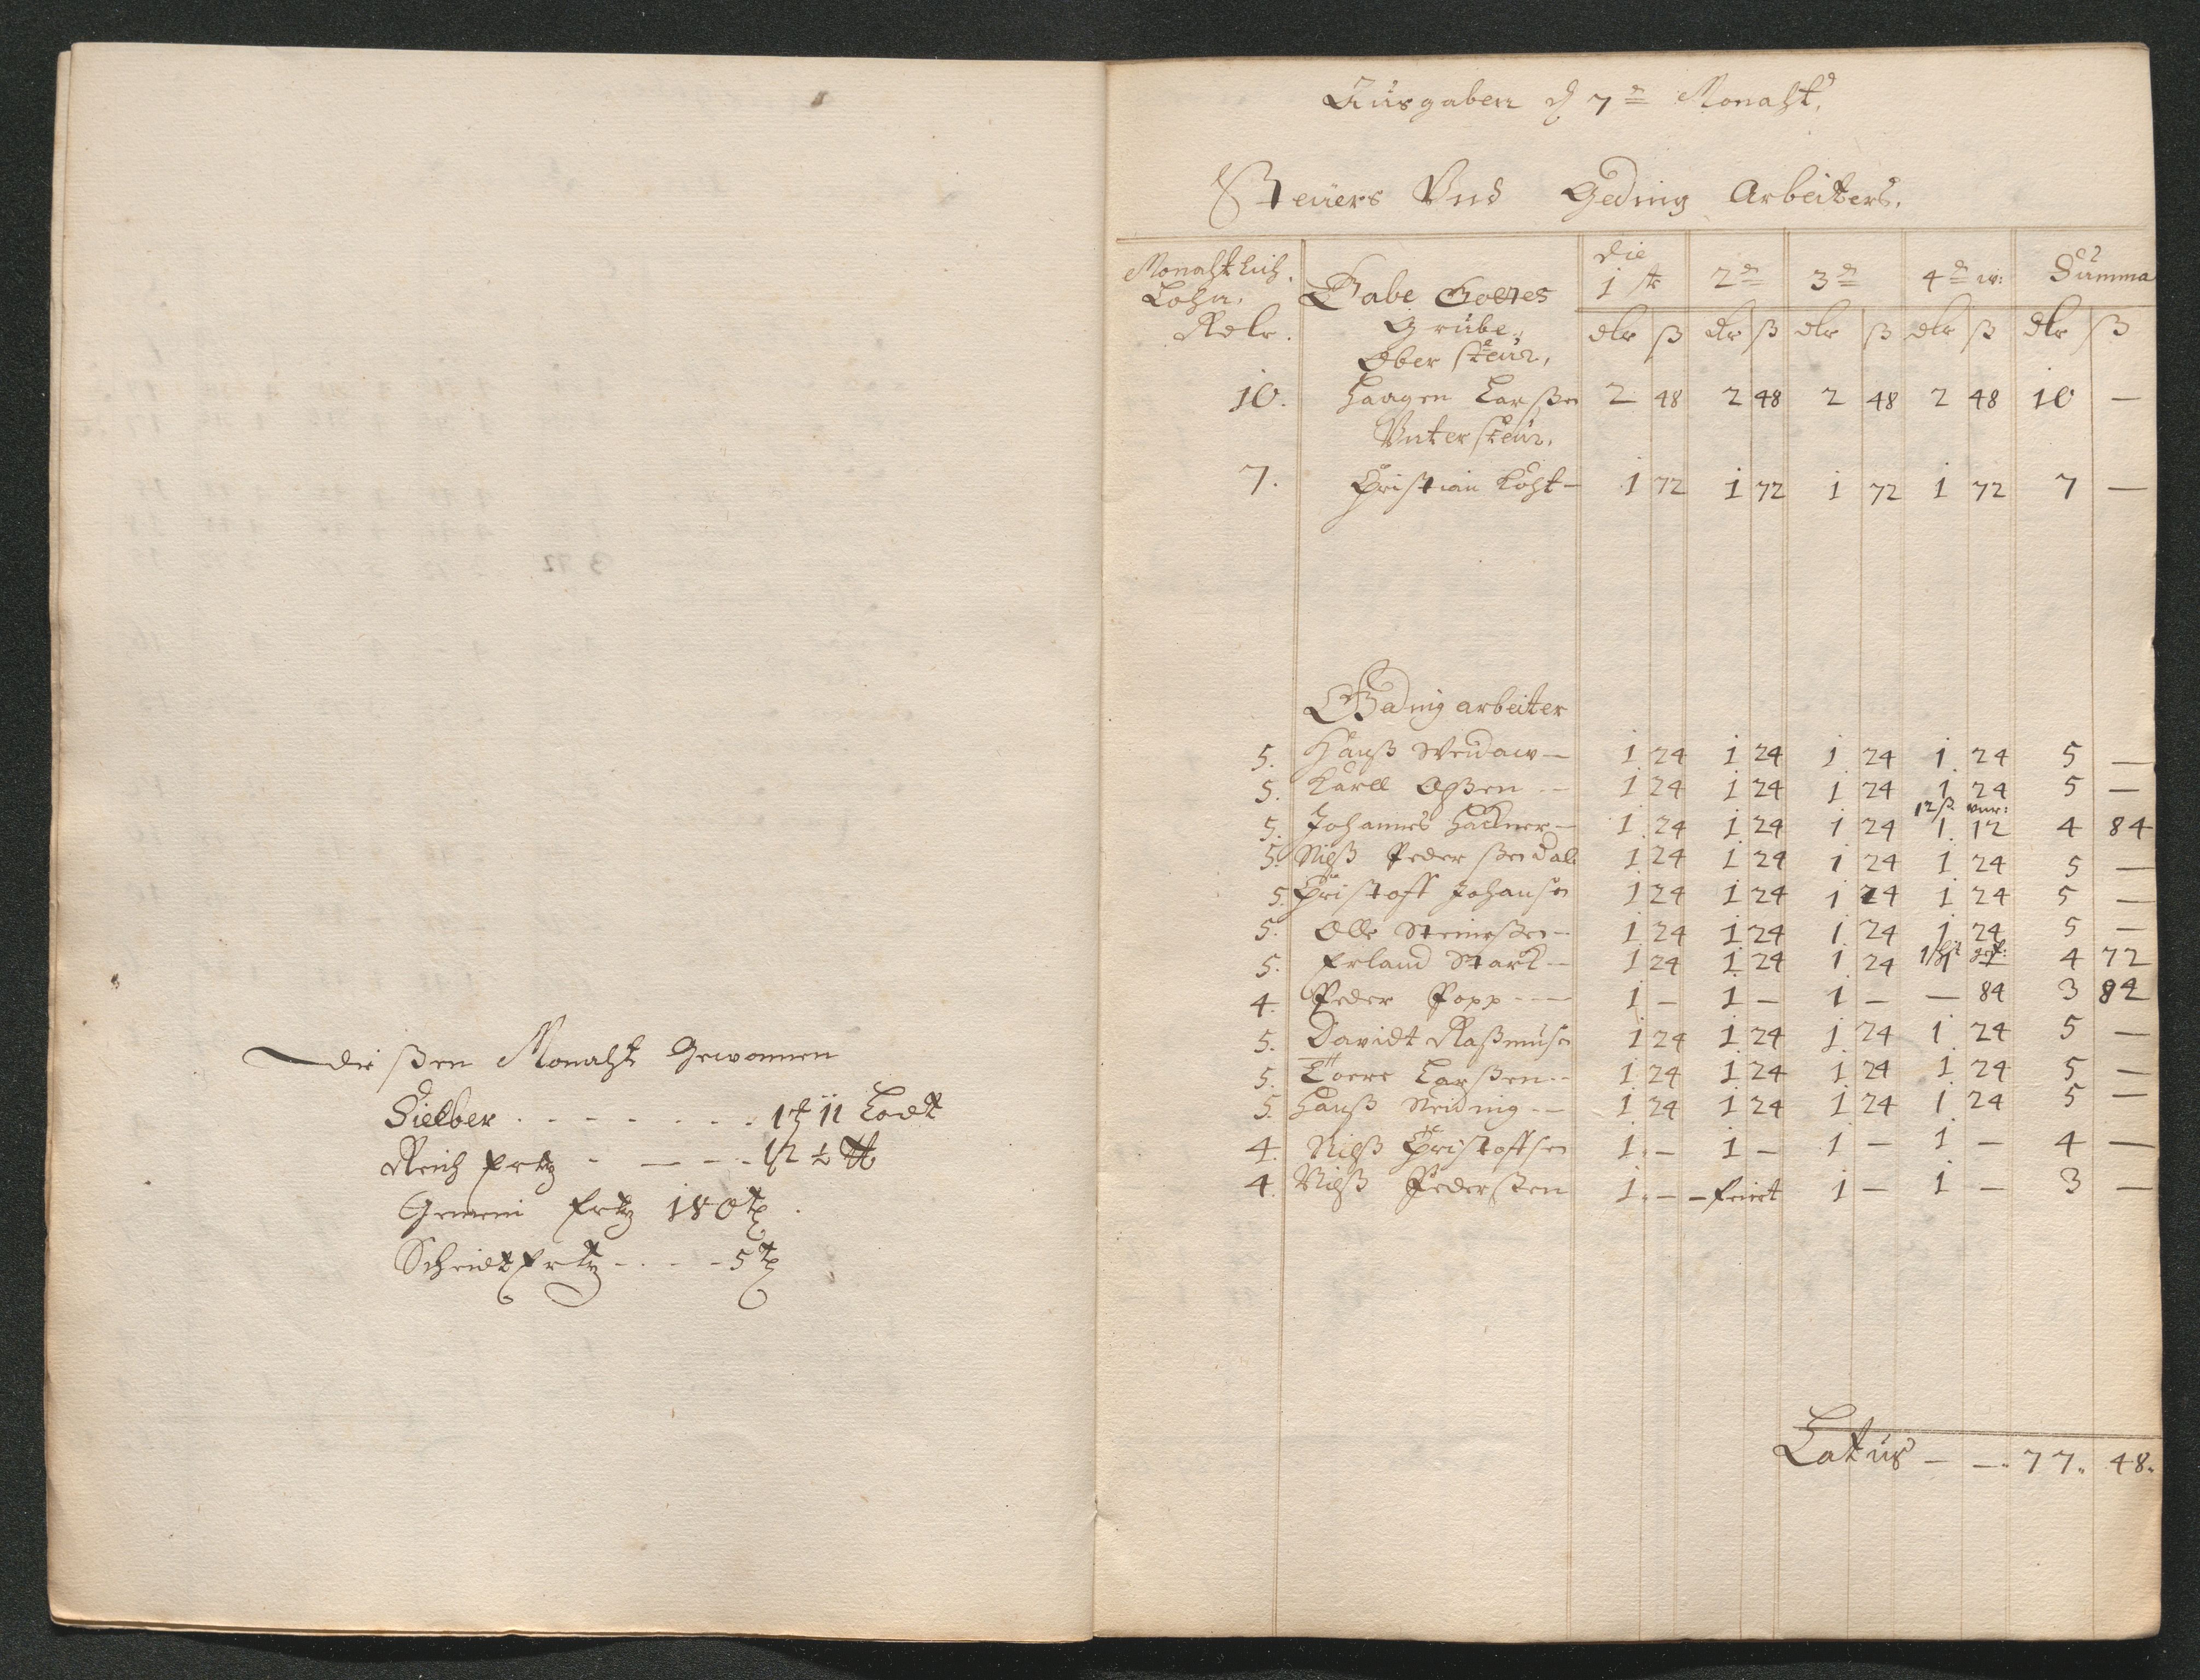 dießen Monaht Gewonnen
Sielber - - - - - - - 1 ꝶ 11 Lodt
Reich Ertz - - - - 12 ½ ℔
Gemein Ertz 180 t
Scheidt Ertz - - - - 5 t
Ausgaben d 7n Monaht
Steüers Vnd Geding Arbeiters.
Monahtlich. Lohn. Rdlr. | Gabe Gottes Grube. | die 1 st | 2n | 3n | 4n w: | Summa
dlr ß dlr ß dlr ß dlr ß dlr ß
Ober steür,
10. Haagen Larßen 2 48 2 48 2 48 2 48 10 —
Vnter steür,
7. Christian Koht — 1 72 1 72 1 72 1 72 7 —
Gading arbeiter
5. Hanß Weidaw — 1 24 1 24 1 24 1 24 5 —
5. Karll Olßen -- 1 24 1 24 1 24 1 24 5 —
12 ß
5. Johannes Hackner — 1 24 1 24 1 24 1 12 4 84
5. Nilß Peder ßen dal 1 24 1 24 1 24 1 24 5 —
5. Christoff Johansen 1 24 1 24 1 24 1 24 5 —
5. Olle Steinerßen -- 1 24 1 24 1 24 1 24 5 —
5. Erland Stark -- 1 24 1 24 1 24 1 4 72
4. Peder Popp ---- 1 — 1 — 1 — — 84 3 84
5. Davidt Raßmusen 1 24 1 24 1 24 1 24 5 —
5. Toere Larßen -- 1 24 1 24 1 24 1 24 5 —
5. Hanß Neiding -- 1 24 1 24 1 24 1 24 5 —
4. Nilß Christoffsen 1 — 1 — 1 — 1 — 4 —
4. Nilß Pederßen 1 — — feiert 1 — 1 — 3 —
Latus — — 77. 48.